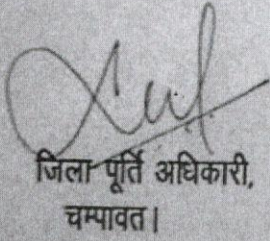 जिला पूर्ति अधिकारी,
चम्पावत।